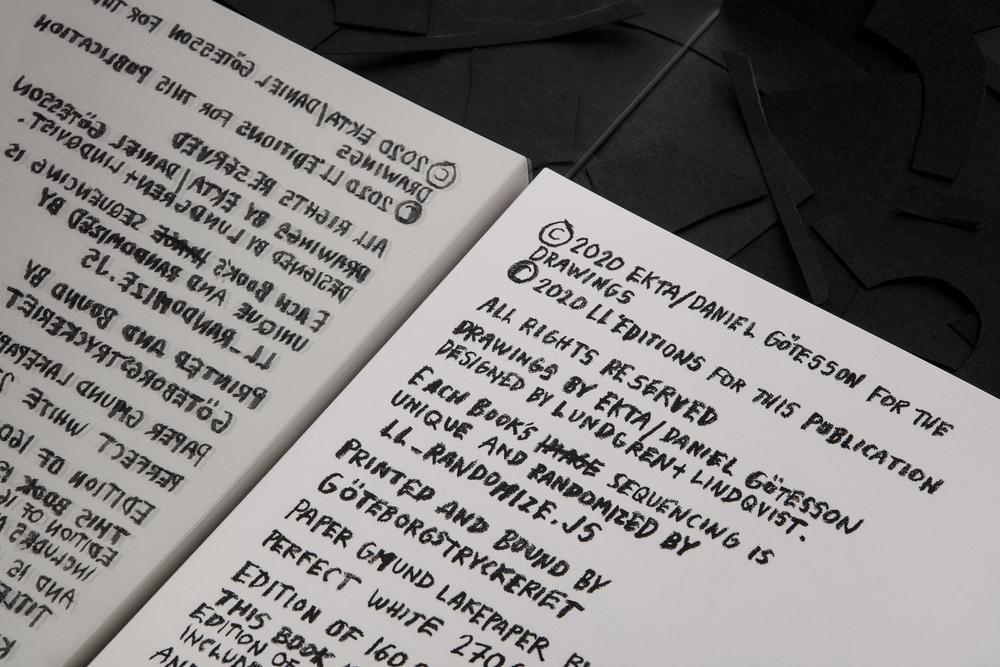 © 2020 EKTA/DANIEL GÖTESSON FOR THE
DRAWINGS
© 2020 LL'EDITIONS FOR THIS PUBLICATION
ALL RIGHTS RESERVED
DRAWINGS BY EKTA/DANIEL GÖTESSON
DESIGNED BY LUNDGREN+LINDQVIST.
EACH BOOK'S IMAGE SEQUENCING IS
UNIQUE AND RANDOMIZED BY
LL-RANDOMIZE.JS
PRINTED AND BOUND BY
GÖTEBORGSTRYCKERIET
PAPER GMUND LAKEPAPER
PERFECT WHITE 270
EDITION OF 160
THIS BOOK
EDITION OF